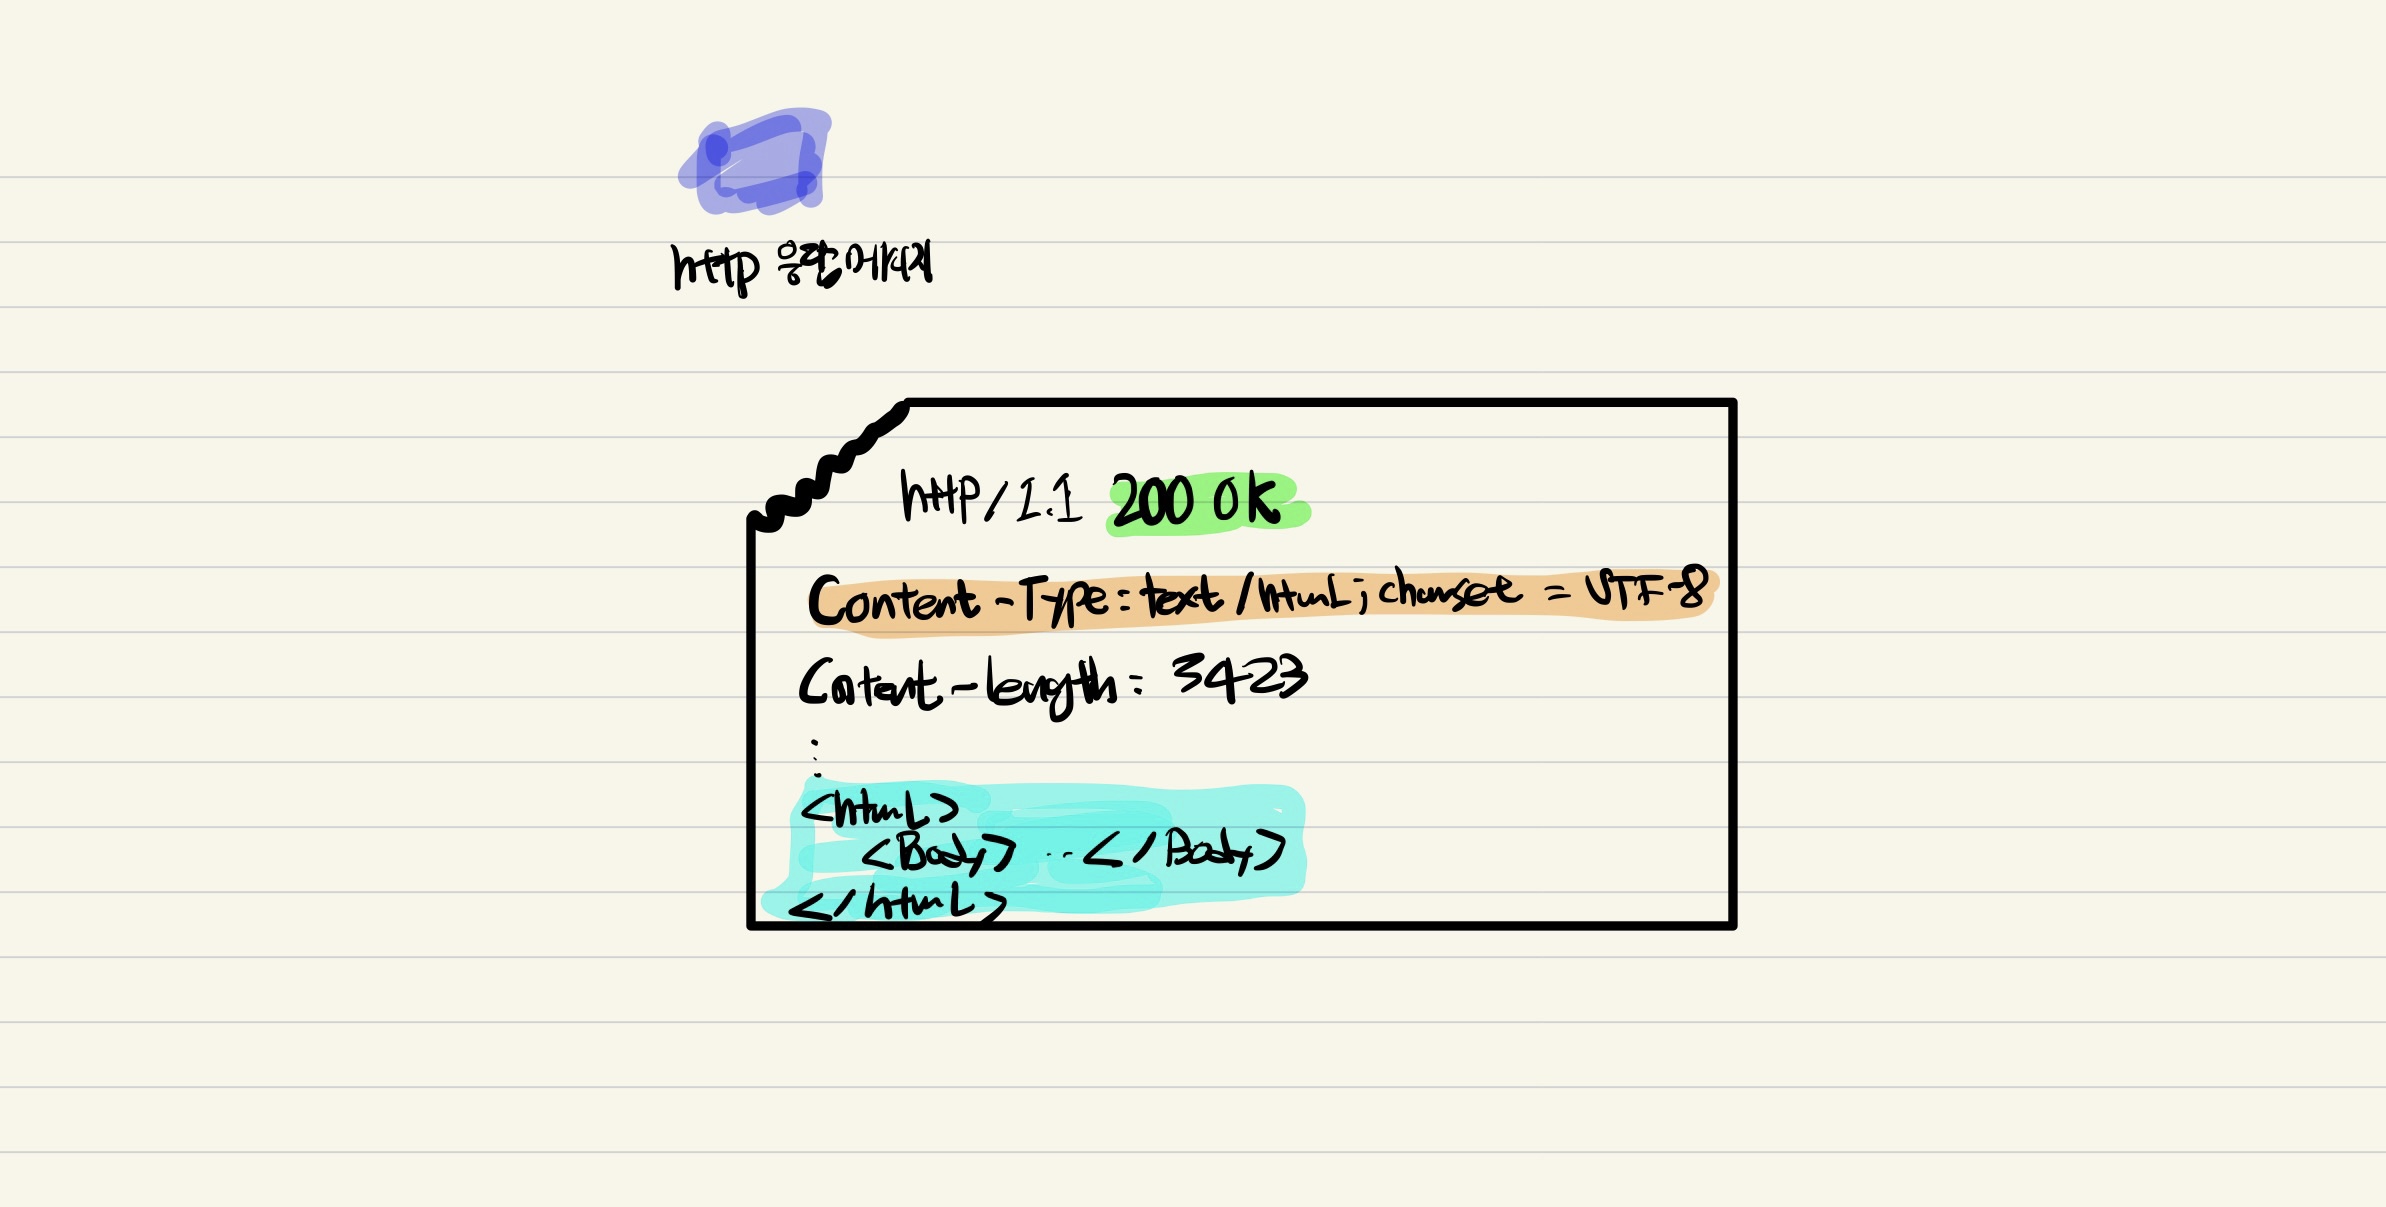 http 응답 메시지
http/1.1 200 OK
Content-Type: text/html; charset = UTF-8
Content-length: 3423
:
<html>
<Body> .. </Body>
</html>